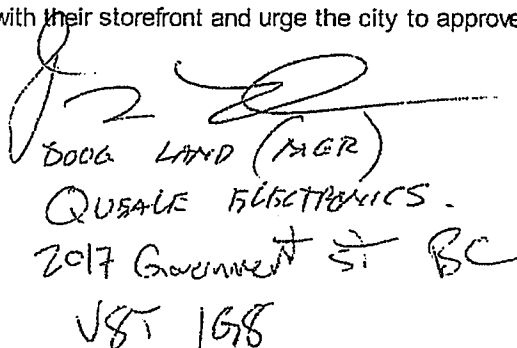 with their storefront and urge the city to approve
DOUG LAND (MGR)
QUEALE ELECTRONICS.
2017 Government ST BC
V8T 1G8